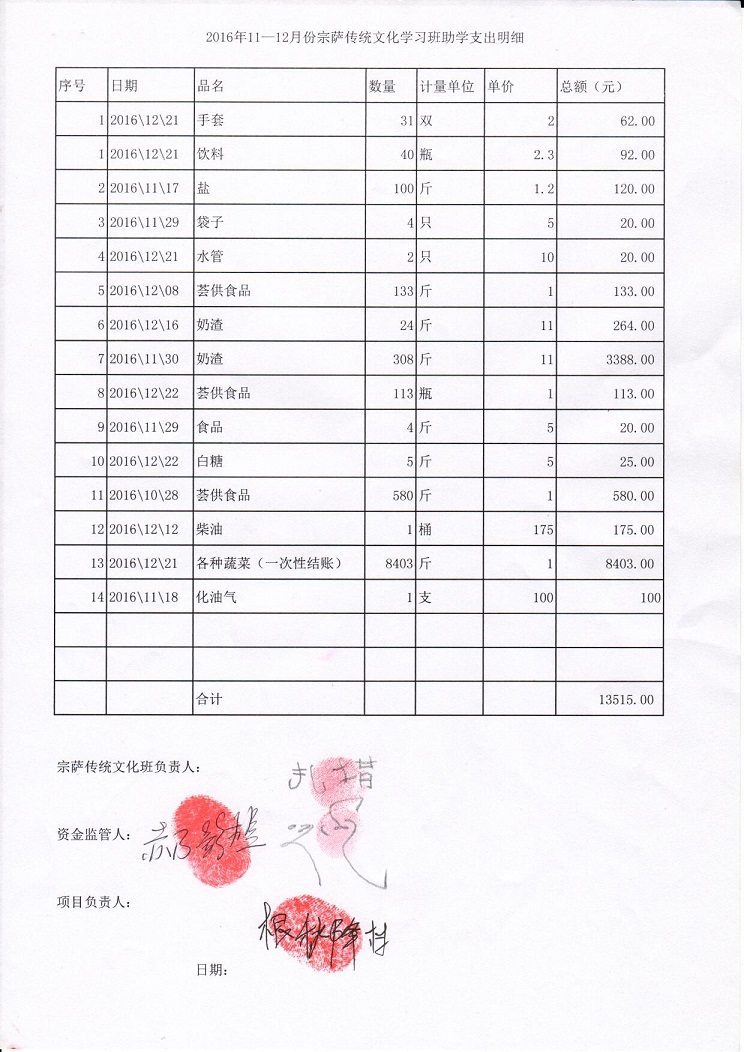 2016年11—12月份宗萨传统文化学习班助学支出明细
序号 日期 品名 数量 计量单位 单价 总额（元）
1 2016\12\21 手套 31 双 2 62.00
1 2016\12\21 饮料 40 瓶 2.3 92.00
2 2016\11\17 盐 100 斤 1.2 120.00
3 2016\11\29 袋子 4 只 5 20.00
4 2016\12\21 水管 2 只 10 20.00
5 2016\12\08 荟供食品 133 斤 1 133.00
6 2016\12\16 奶渣 24 斤 11 264.00
7 2016\11\30 奶渣 308 斤 11 3388.00
8 2016\12\22 荟供食品 113 瓶 1 113.00
9 2016\11\29 食品 4 斤 5 20.00
10 2016\12\22 白糖 5 斤 5 25.00
11 2016\10\28 荟供食品 580 斤 1 580.00
12 2016\12\12 柴油 1 桶 175 175.00
13 2016\12\21 各种蔬菜（一次性结账） 8403 斤 1 8403.00
14 2016\11\18 化油气 1 支 100 100
合计 13515.00
宗萨传统文化班负责人：
资金监管人：
项目负责人：
日期：